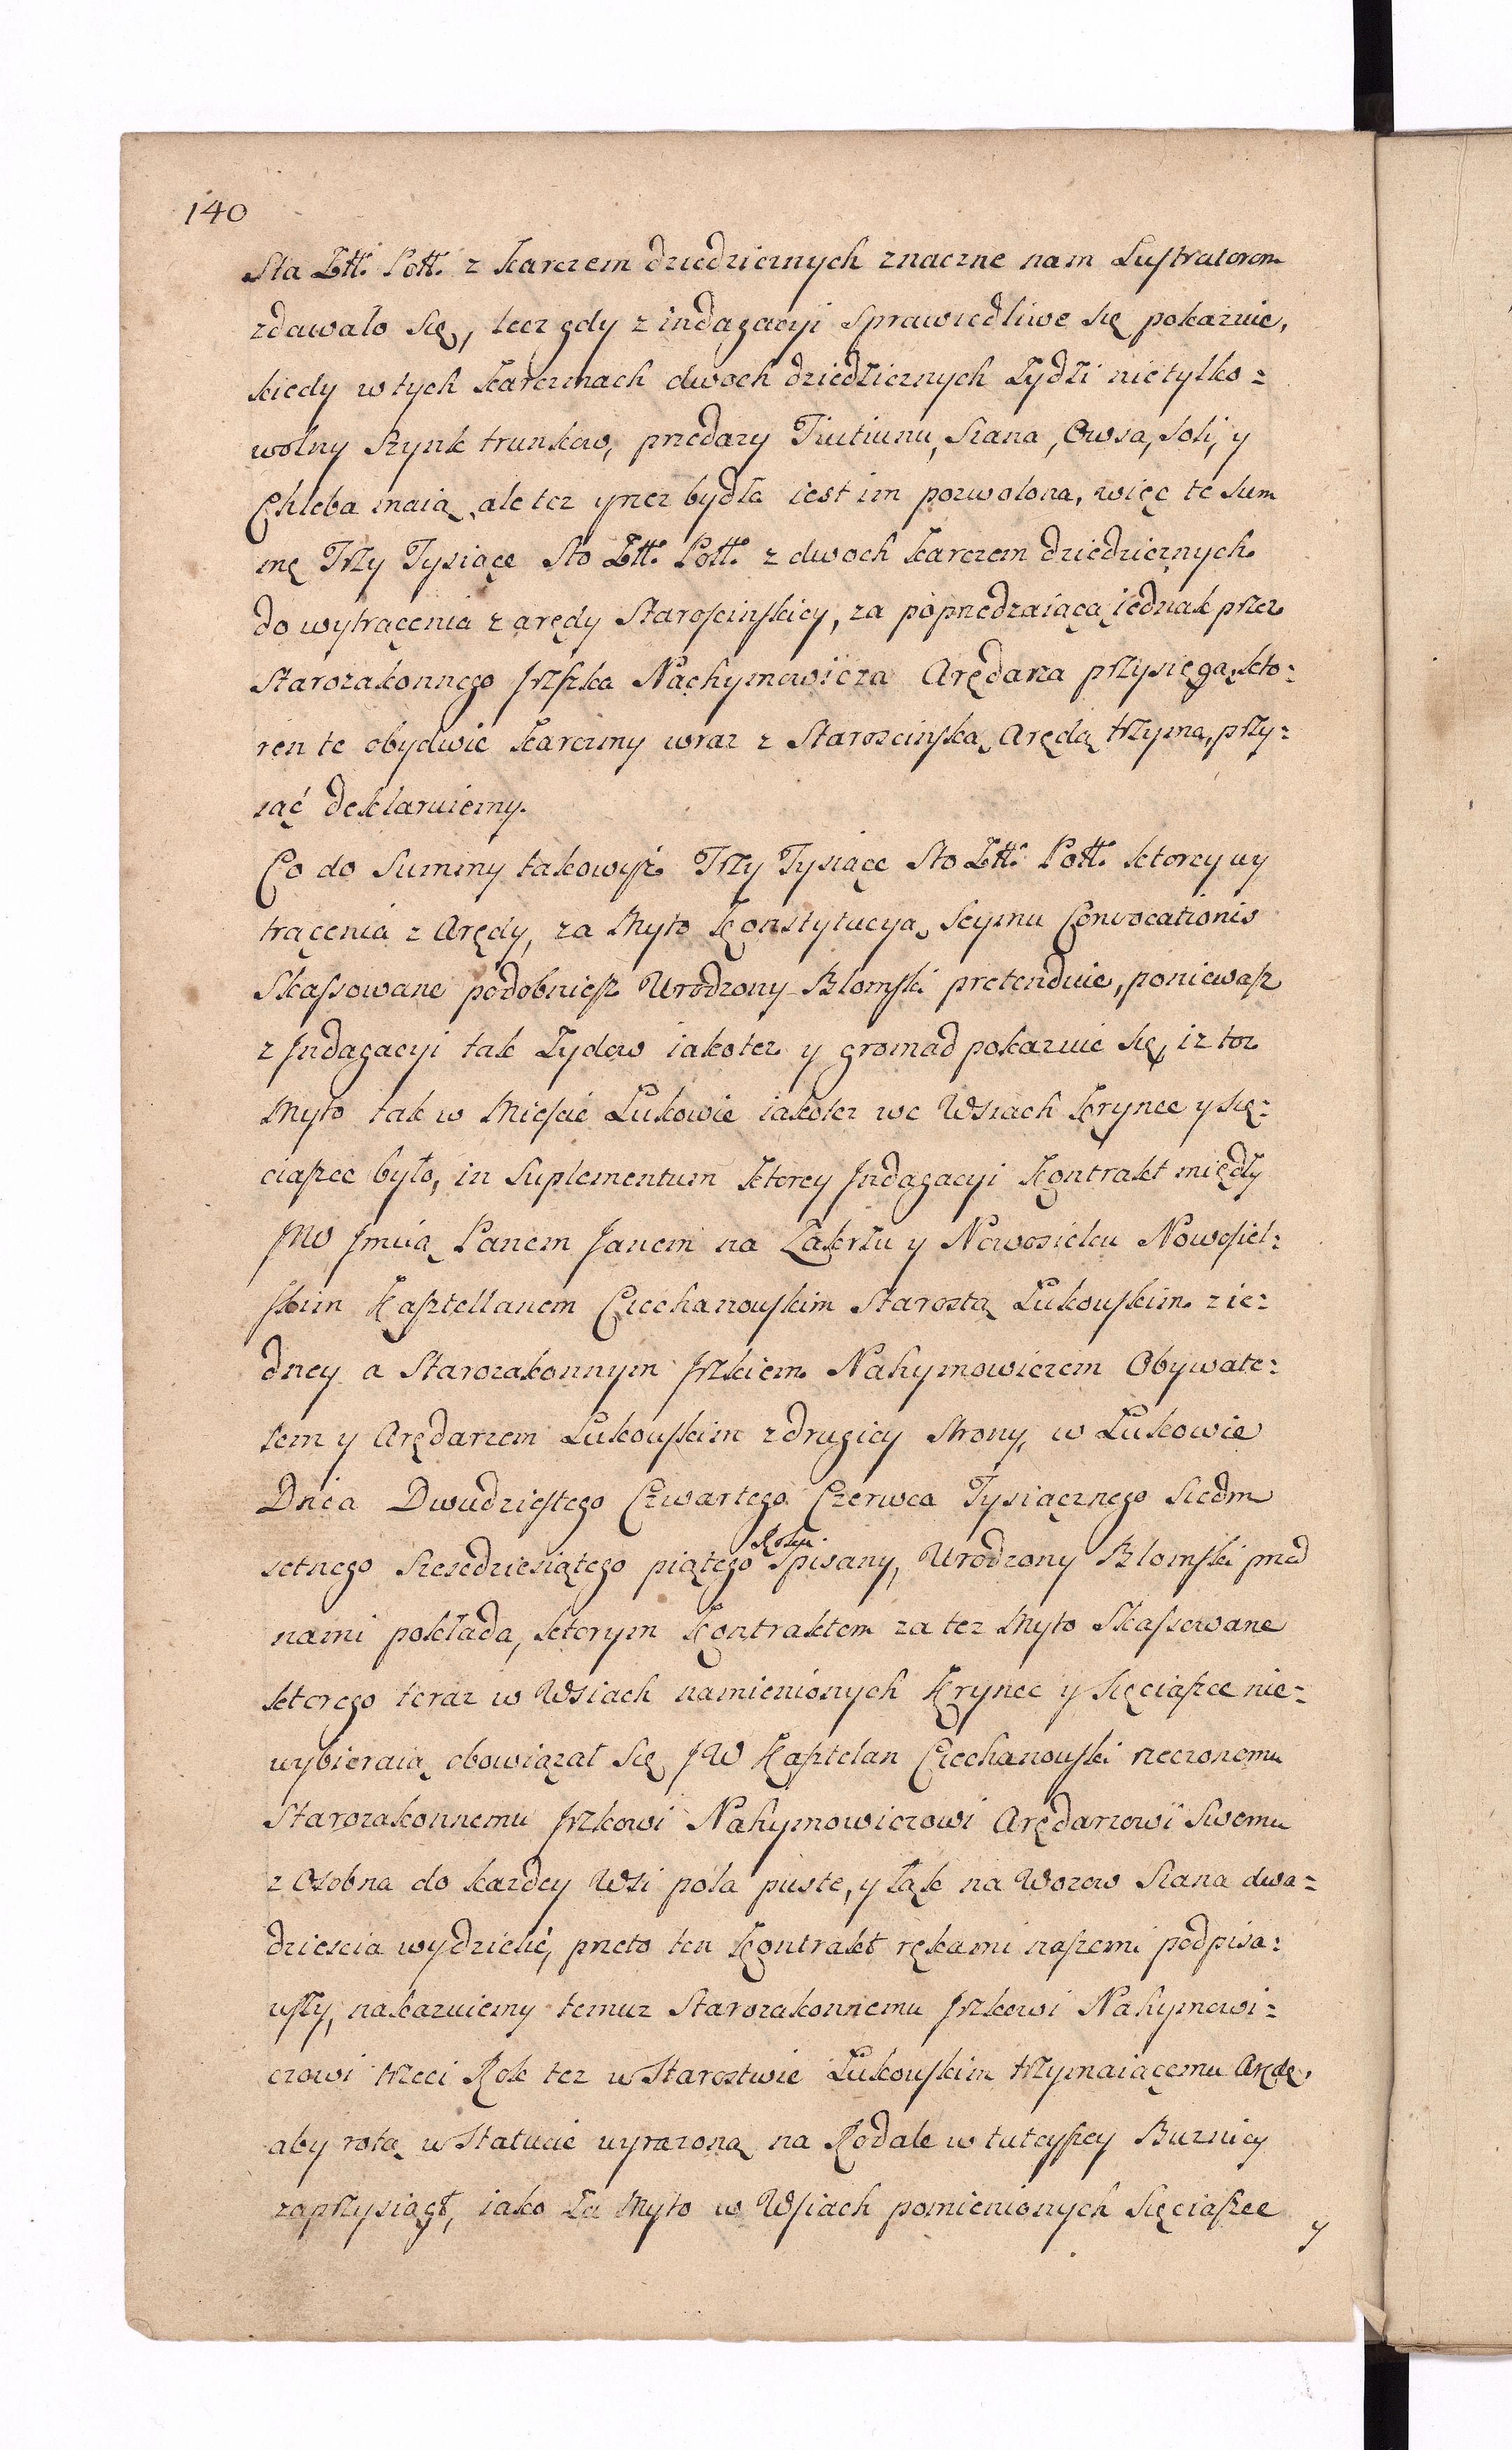 140
Sta Złł. Poll. z karczem dziedzicznych znaczne nam Lustratorom
zdawało się, lecz gdy z indagacyi sprawiedliwe się pokazuie,
kiedy w tych karczmach dwoch dziedzicznych Żydzi nietylko=
wolny Szynk trunkow, przedazy Tiutiunu, Siana, Owsa, Soli, y
Chleba maią, ale tez y rzez bydła iest im pozwolona, więc te Sum
mę Trzy Tysiące Sto Złł. Poll. z dwoch karczem dziedzicznych
do wytrącenia z arędy Starościnskiey, za poprzedzaiącą iednak przez
Starozakonnego Jrszka Nachymowicza Arędarza przysięgą, kto=
ren te obydwie karczmy wraz z Starościnską Arędą trzyma, przy=
iąć deklaruiemy.
Co do Summy takowyż Trzy Tysiące Sto Złł. Poll. ktorey wy
trącenia z Arędy, za Myto Konstytucyą Seymu Convocationis
Skassowane podobniesz Urodzony Błomski pretenduie, poniewasz
z Jndagacyi tak Żydow iakotez y gromad pokazuie się, iz toz
Myto tak w Mieście Łukowie iakotez we Wsiach Krynce y Się=
ciaszce było, in Suplementum ktorey Jndagacyi Kontrakt między
JW Jmcią Panem Janem na Zakrzu y Nowosielcu Nowosiel=
skim Kasztellanem Ciechanowskim Starostą Łukowskim z ie=
dney a Starozakonnym Jrszkiem Nahymowiczem Obywate=
lem y Arędarzem Łukowskim z drugiey strony, w Łukowie
Dnia Dwudziestego Czwartego Czerwca Tysiącznego Siedm
setnego Szescdziesiątego piątego Roku Spisany, Urodzony Błomski przed
nami pokłada, ktorym Kontraktem za tez Myto Skassowane
ktorego teraz w Wsiach namienionych Krynce y Sięciaszce nie=
wybieraią obowiązał się JW Kasztelan Ciechanowski rzeczonemu
Starozakonnemu Jrszkowi Nahymowiczowi Arędarzowi Swemu
z Osobna do kazdey Wsi pola puste, y łąk na Wozow Siana dwa=
dziescia wydzielić, przeto ten Kontrakt rękami naszemi podpisa=
wszy, nakazuiemy temuz Starozakonnemu Jrszkowi Nahymowi=
czowi trzeci Rok tez w Starostwie Łukowskim trzymaiącemu Arędę,
aby rotą w Statucie wyrazoną na Rodale w tuteyszey Buznicy
zaprzysiągł, iako Za Myto w Wsiach pomienionych Sięciaszce
y